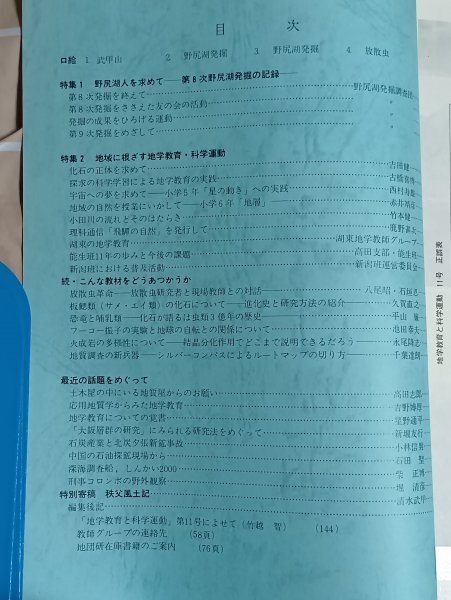 目　次
口絵　1　武甲山　2　野尻湖発掘　3　野尻湖発掘　4　放散虫
特集1　野尻湖人を求めて——第8次野尻湖発掘の記録——
第8次発掘を終えて……野尻湖発掘調査団
第8次発掘をささえた友の会の活動……〃
発掘の成果をひろげる運動……〃
第9次発掘をめざして……〃
特集2　地域に根ざす地学教育・科学運動
化石の正体を求めて……吉田健一
探求の科学学習による地学教育の実践……古橋喜博
宇宙への夢を求めて——小学5年「星の動き」への実践……西村寿雄
地域の自然を授業にいかして——小学6年「地層」……赤井
小田川の流れとそのはたらき……竹本健一
理科通信「飛騨の自然」を発行して……鹿野
湖東の地学教育……湖東地学教師グループ
能生班11年の歩みと今後の課題……高田支部・能生班
新潟班における普及活動……新潟班運営委員会
続・こんな教材をどうあつかうか
放散虫革命——放散虫研究者と現場教師との対話……八尾昭・石田志
板鰓類（サメ・エイ類）の化石について——進化史と研究方法の紹介……久賀直之
恐竜と哺乳類——化石が語るは虫類3億年の歴史……平山廉
フーコー振子の実験と地球の自転との関係について……池田泰夫
火成岩の多様性について——結晶分化作用でどこまで説明できるだろう……永尾隆志
地質調査の新兵器——シルバーコンパスによるルートマップの切り方……千葉達朗
最近の話題をめぐって
土木屋の中にいる地質屋からのお願い……高田志郎
応用地質学からみた地学教育……吉野博厚
地学教育についての覚書……星野通平
「大阪層群の研究」にみられる研究法をめぐって……新堀友行
石炭産業と北炭夕張新鉱事故……小林信男
中国の石油探鉱現場から……石田聖
深海調査船，しんかい2000……柴正博
刑事コロンボの野外観察……堀清彦
特別寄稿　秩父風土記……清水武甲
編集後記
「地学教育と科学運動」第11号によせて（竹越　智）　（144）
教師グループの連絡先　（58頁）
地団研在庫書籍のご案内　（76頁）
地学教育と科学運動　11号　正誤表